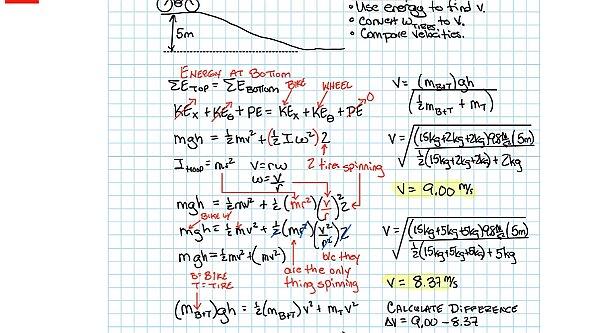 • Use energy to find v.
• Convert ω_TIRES to V.
• Compare velocities.
5m
ENERGY AT BOTTOM
ΣE_TOP = ΣE_BOTTOM
BIKE
WHEEL
KE_x + KE_θ + PE = KE_x + KE_θ + PE
0
mgh = ½mv² + (½Iω²)2
I_HOOP = mr²
V = rω
ω = V/r
2 tires spinning
mgh = ½mv² + ½(mr²)(V/r)²2
BIKE
mgh = ½mv² + ½(mr²)(V²/r²)2
mgh = ½mv² + (mv²)
b/c they
are the only
thing spinning
B = BIKE
T = TIRE
(m_B+T)gh = ½(m_B+T)v² + m_Tv²
V = √((m_B+T)gh / (½m_B+T + m_T))
V = √((15kg+2kg+2kg)9.8m/s²(5m) / (½(15kg+2kg+2kg)+2kg))
V = 9.00 m/s
V = √((15kg+5kg+5kg)9.8m/s²(5m) / (½(15kg+5kg+5kg)+5kg))
V = 8.37 m/s
CALCULATE DIFFERENCE
ΔV = 9.00 - 8.37